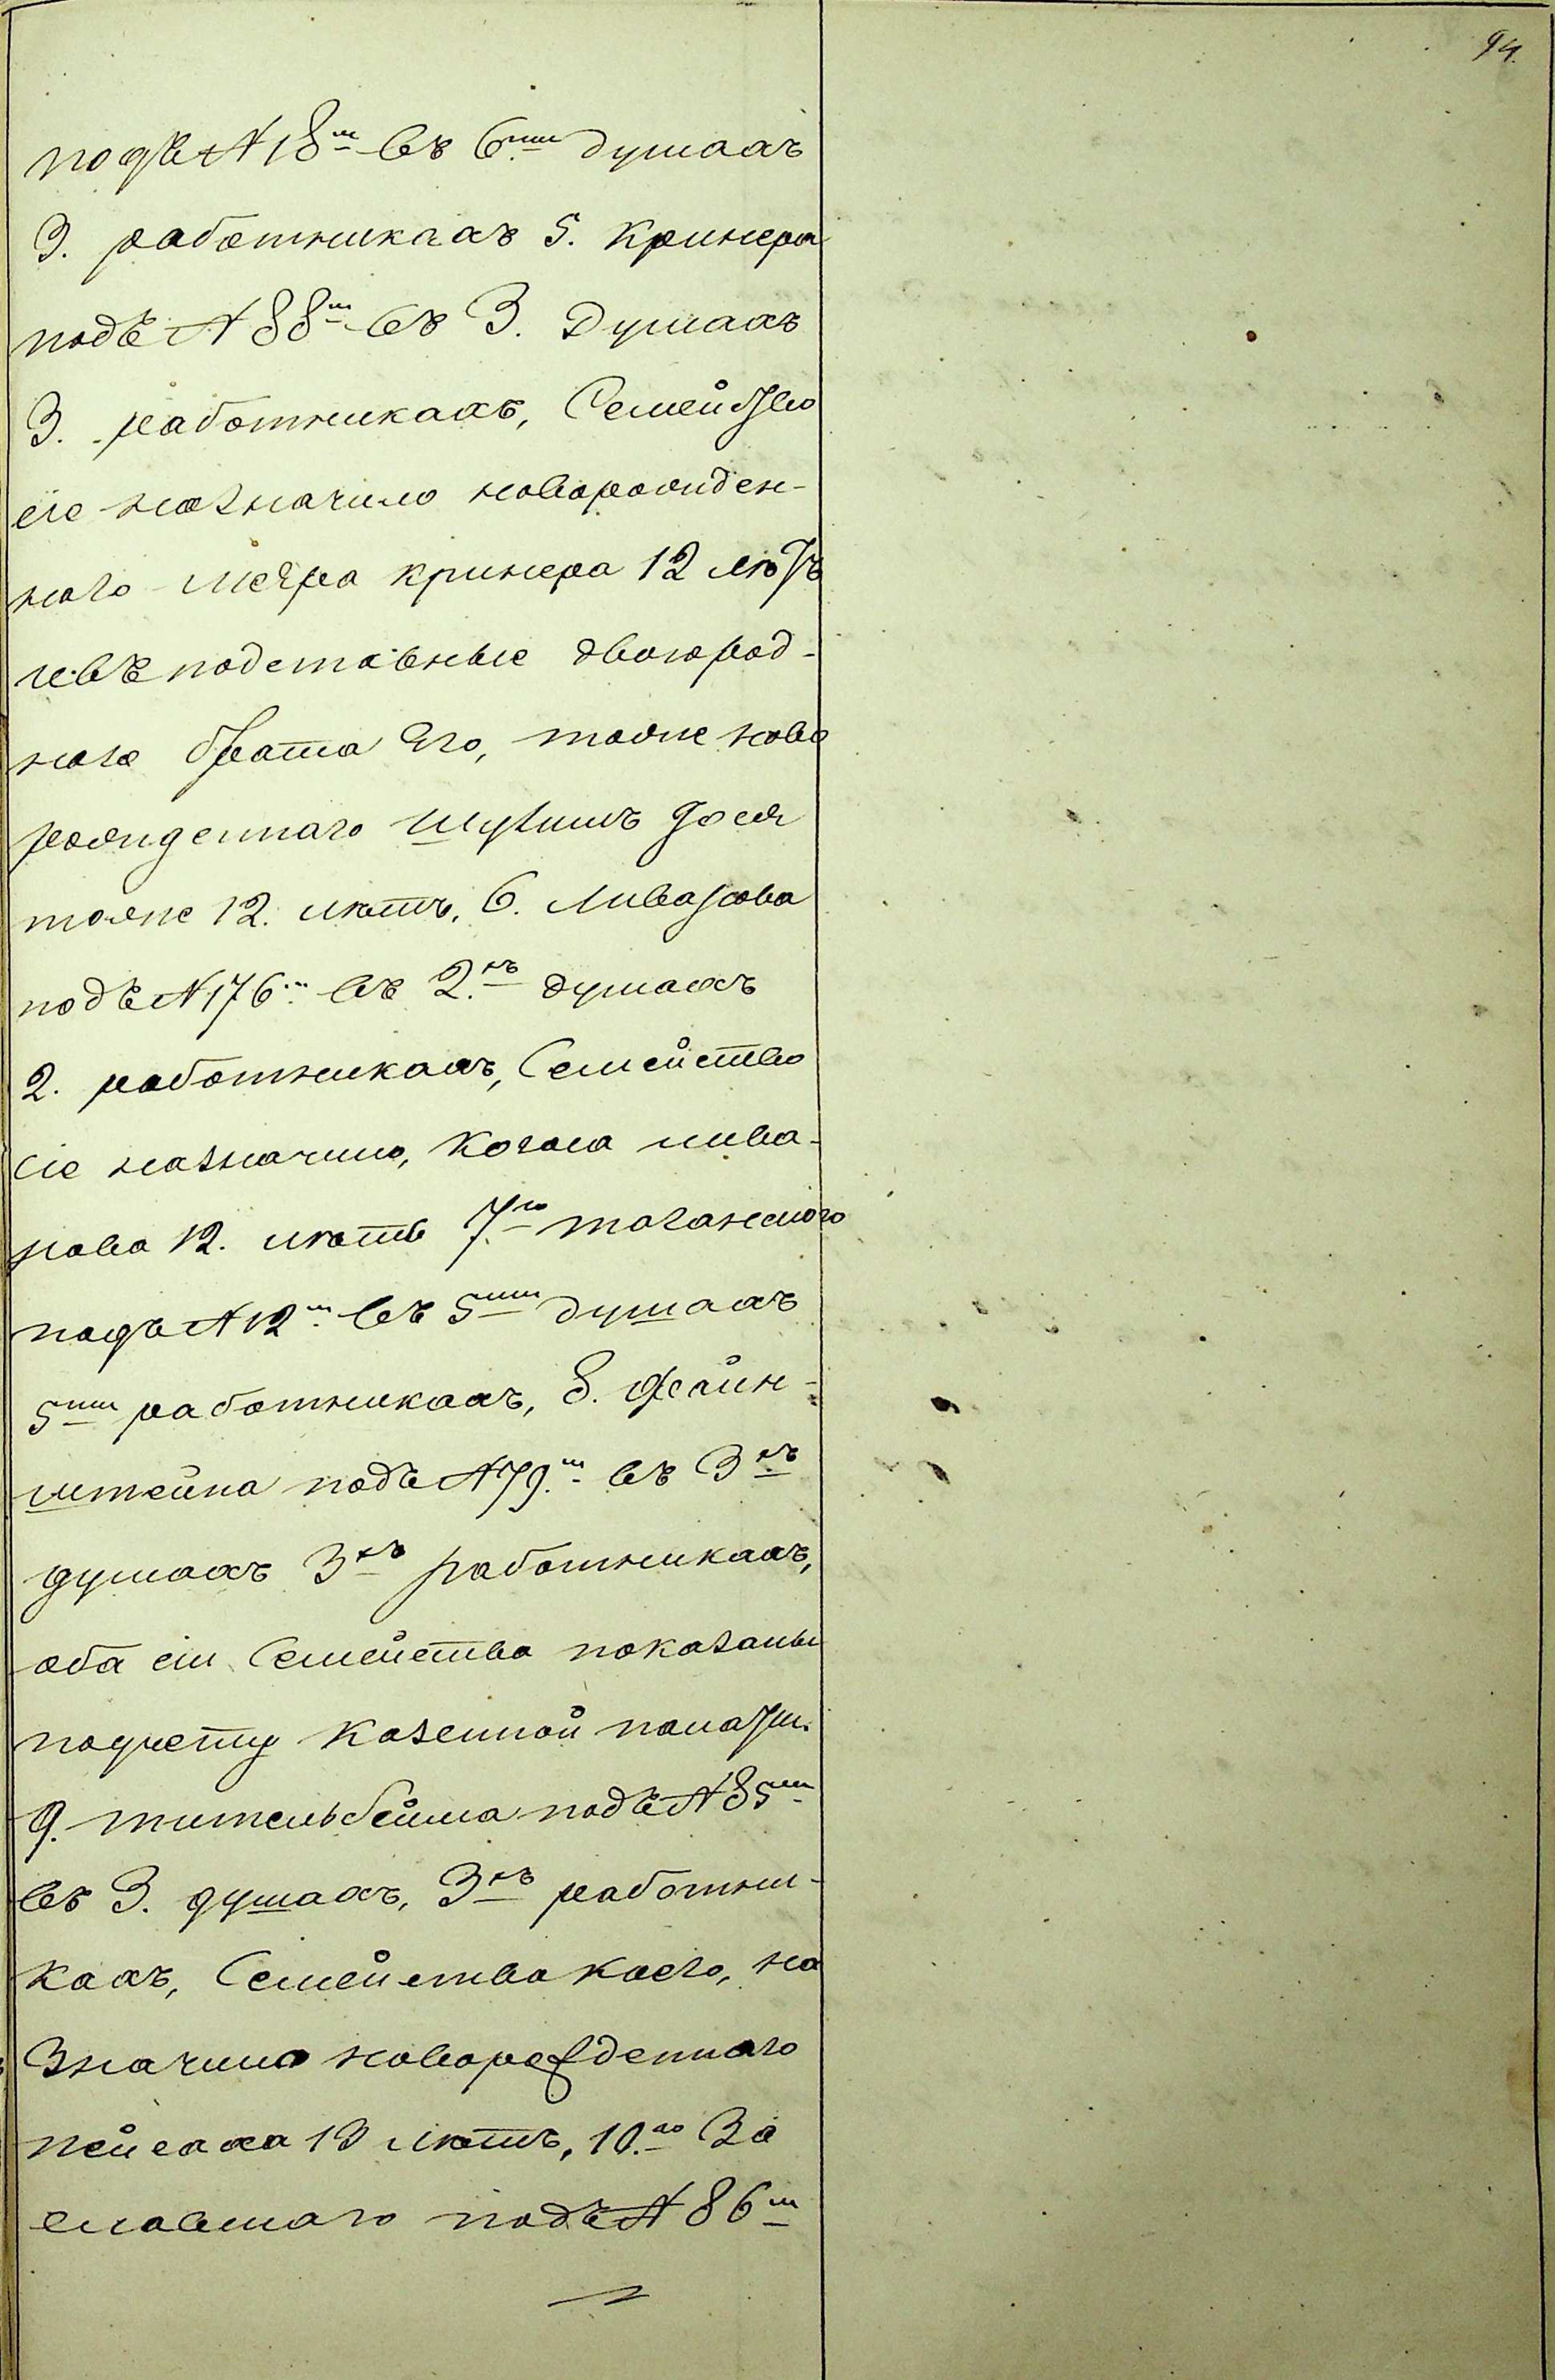 94.
подъ N 18м въ 6ти душахъ
3. работникахъ 5. Кринера
подъ N 88м въ 3. Душахъ
3. работникахъ, Семейство
сіе назначило новорожден-
наго Меера кринера 12 лѣтъ
въ подставные двоюрод-
наго брата Его, тоже ново
рожденнаго
тоже 12. лѣтъ, 6. Ливарова
подъ N 176м въ 2хъ душахъ
2. работникахъ, Семейство
сіе назначило, Когана лива-
рова 12. лѣтъ 7го таганского
подъ N 12м въ 5ти душахъ
5ти работникахъ, 8. Файн-
штейна подъ N 79.м въ 3хъ
душахъ 3хъ работникахъ,
оба сіи Семейства показаны
поучету Казенной палаты.
9. тительбейма подъ N 85м
въ 3. душахъ, 3хъ работни-
кахъ, Семейства коего, на
Значило новорожденнаго
пейсаха 13 лѣтъ, 10.го За
славскаго подъ N 86м